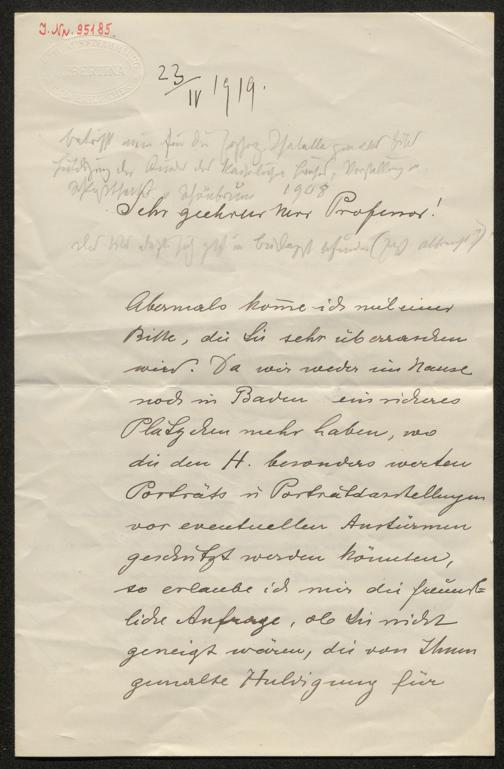 J. Nr. 95185.
ALBERTINA
23/IV 1919.
betrifft mein für die
Huldigung der Kinder der
Schönbrunn 1908
Sehr geehrter Herr Professor!
Abermals kom̄e ich mit einer
Bitte, die Sie sehr überraschen
wird. Da wir weder im Hause
noch in Baden ein sicheres
Plätzchen mehr haben, wo
die den H. besonders werten
Porträts u Porträtdarstellungen
vor eventuellen Anstürmen
geschützt werden könnten,
so erlaube ich mir die freund=
liche Anfrage, ob Sie nicht
geneigt wären, die von Ihnen
gemalte Huldigung für